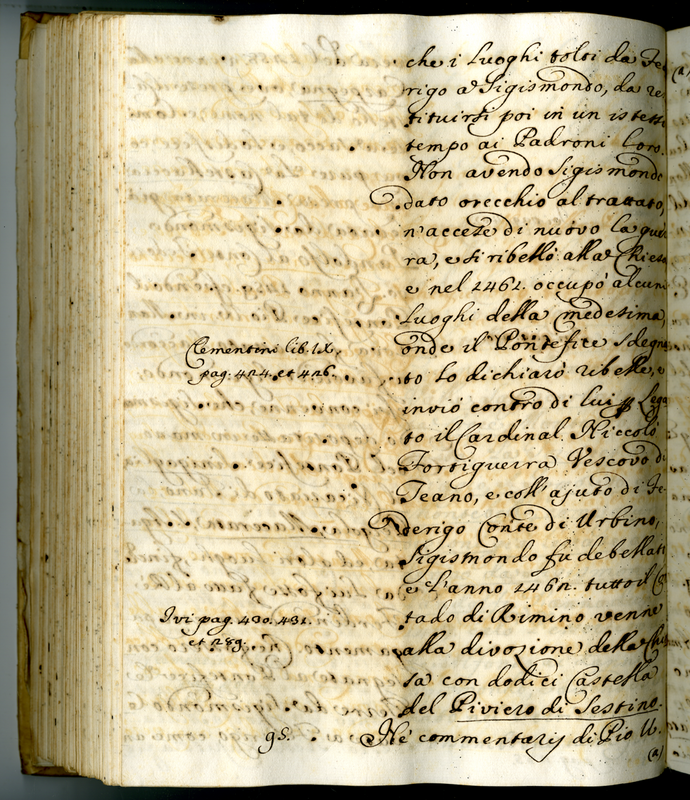 che i Luoghi tolti da Fe
rigo a Sigismondo, da re
tituirsi poi in un istesso
tempo ai Padroni loro.
Non avendo Sigismondo
dato orecchio al trattato,
n'accese di nuovo la guer
ra, e si ribellò alla Chiesa
e nel 1461. occupò alcuni
Luoghi della medesima,
Clementini lib. IX.
pag. 424. et 426.
onde il Pontefice sdegna
to lo dichiarò ribelle, e
inviò contro di lui p Lega
to il Cardinal Niccolò
Fortiguerra Vescovo di
Teano, e coll'ajuto di Fe
derigo Conte di Urbino,
Sigismondo fù debellato
e l'anno 1462. tutto il Co
Ivi pag. 430. 431.
et 289.
tado di Rimino venne
alla divozione della Chie
sa con dodici Castella
del Piviero di Sestino.
Ne commentarij di Pio II.
(a)